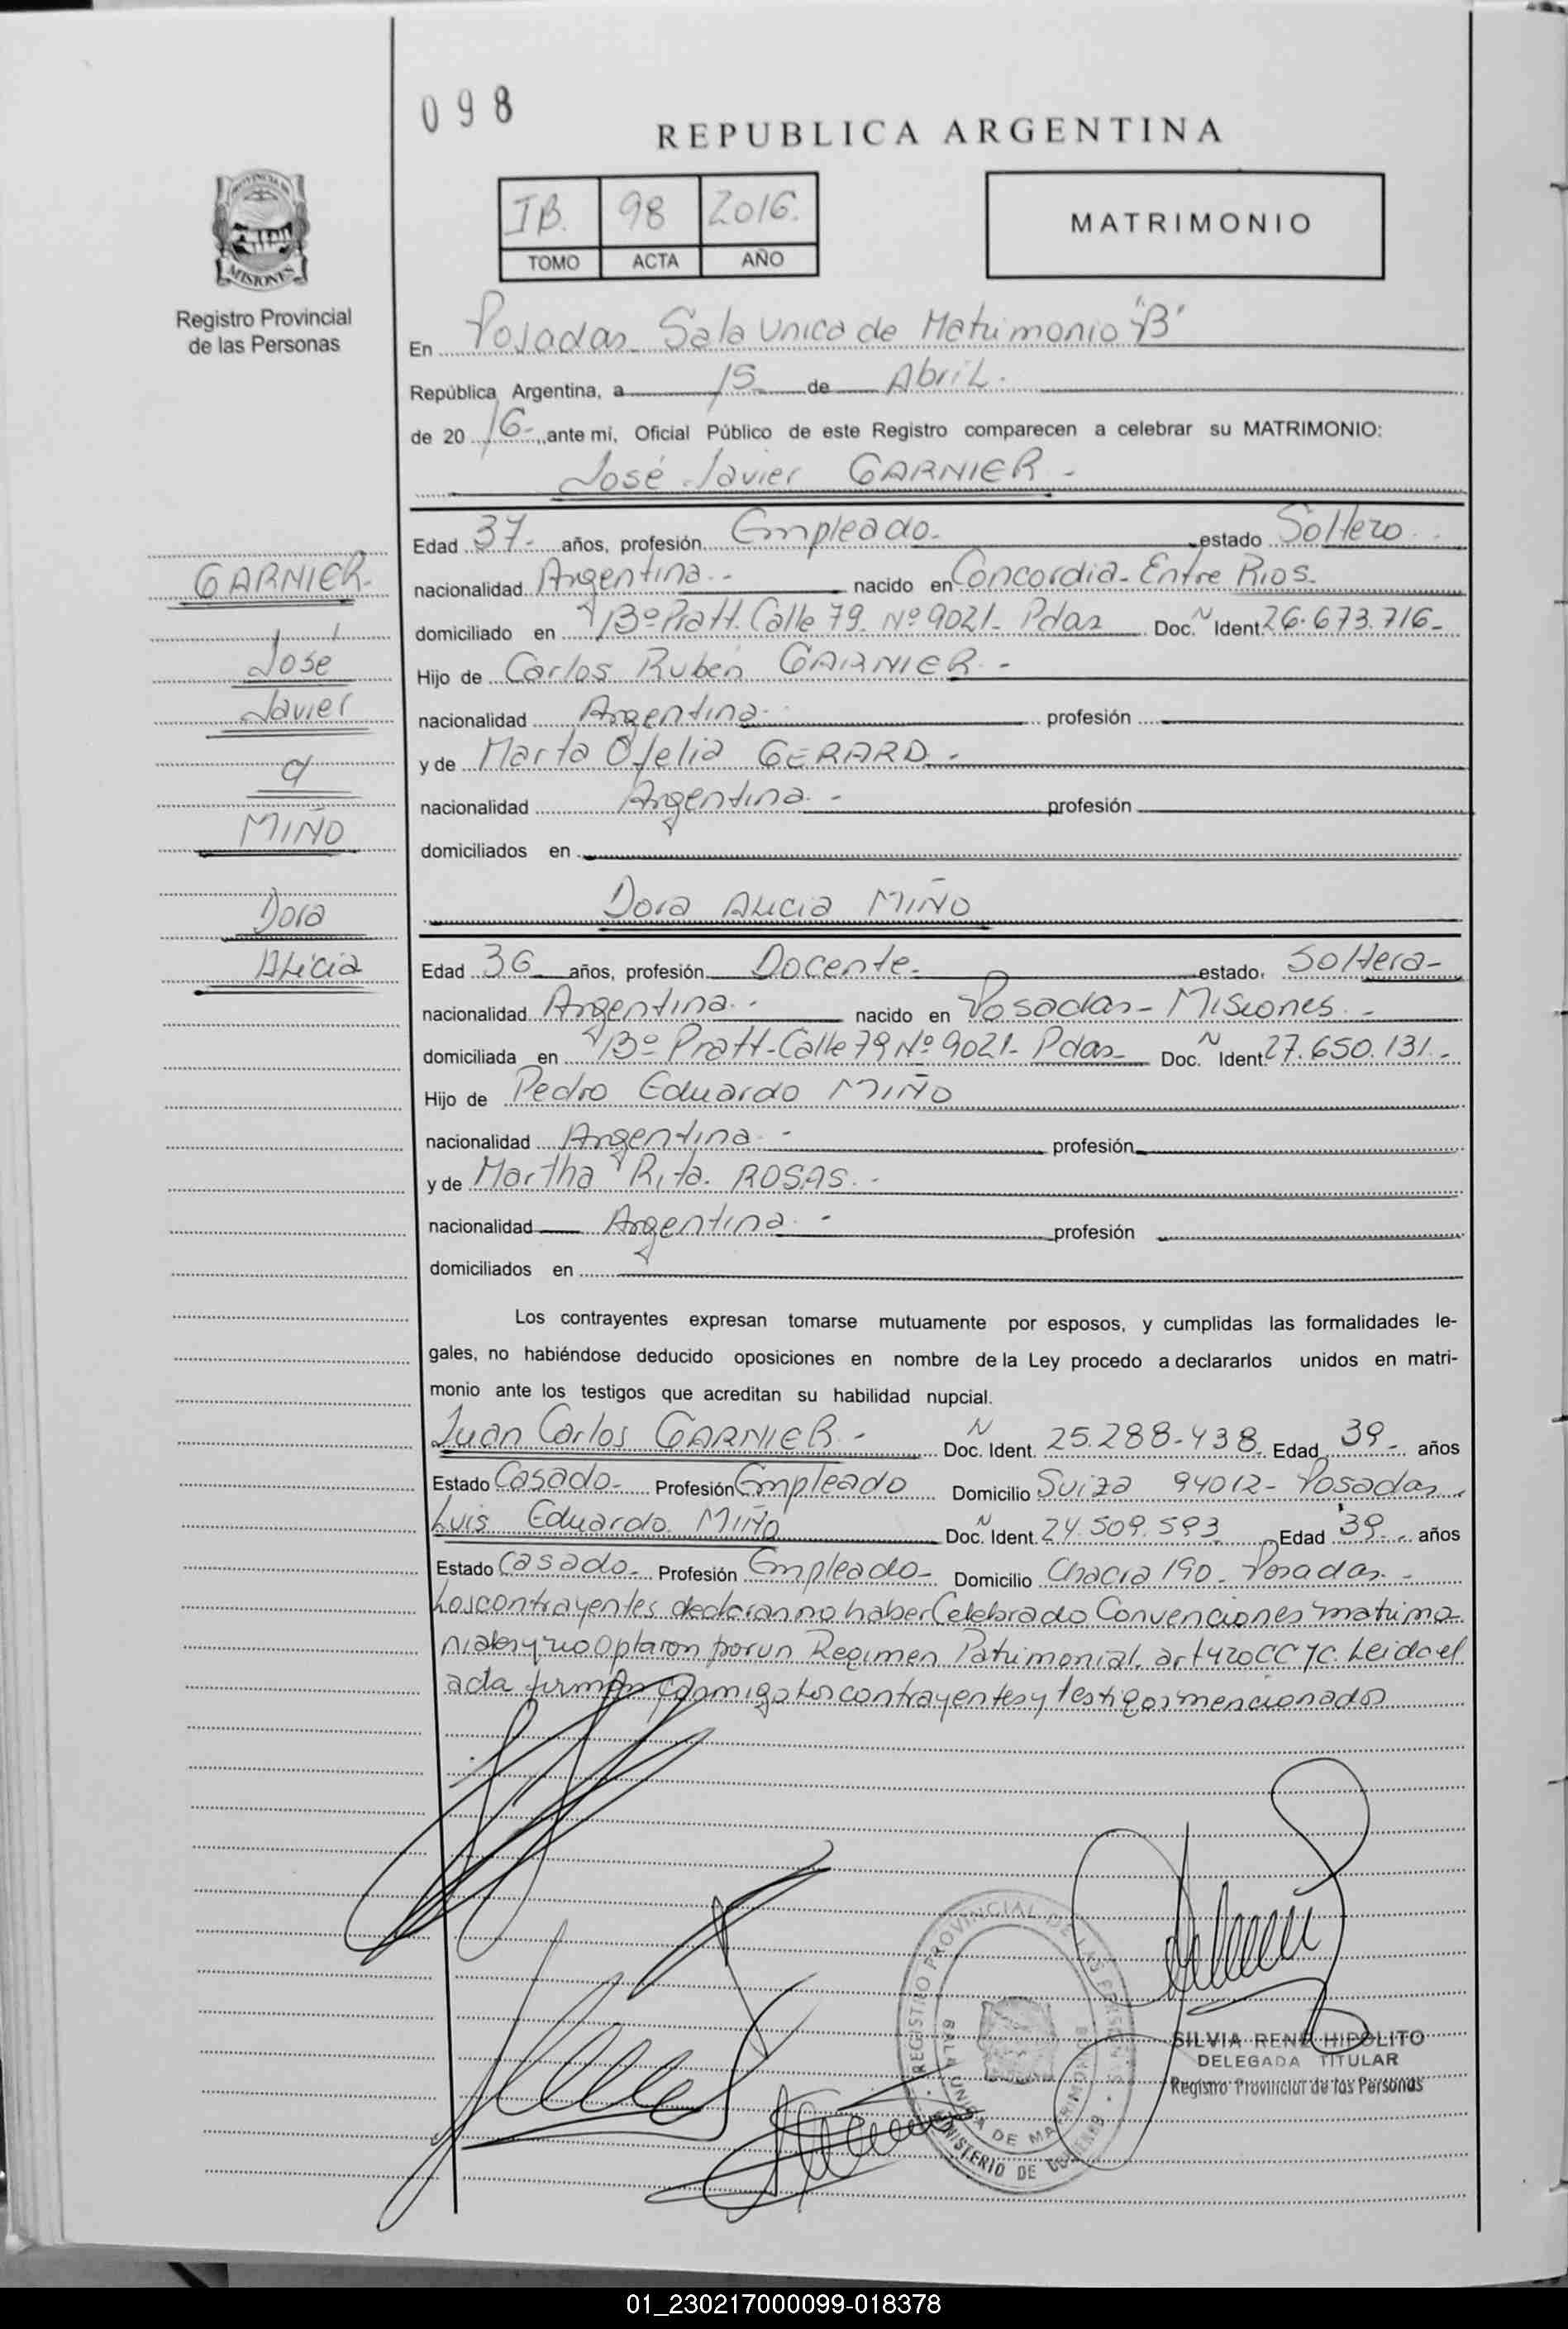 098
REPUBLICA ARGENTINA
IB. 98 2016.
TOMO ACTA AÑO
MATRIMONIO
PROVINCIA DE
MISIONES
Registro Provincial
de las Personas
En Posadas Sala Unica de Matrimonio "B"
República Argentina, a 15 de Abril.
de 20 16-, ante mi, Oficial Público de este Registro comparecen a celebrar su MATRIMONIO:
José Javier GARNIER -
Edad 37- años, profesión Empleado- estado Soltero
nacionalidad Argentina - nacido en Concordia- Entre Rios-
domiciliado en Bº Pratt. Calle 79- Nº 9021- Pdas Doc. N Ident. 26.673.716-
Hijo de Carlos Rubén GARNIER -
nacionalidad Argentina- profesión
y de Marta Ofelia GERARD -
nacionalidad Argentina - profesión
domiciliados en
GARNIER-
José
Javier
c/
MIÑO
Dora
Alicia
Dora Alicia MIÑO
Edad 36 años, profesión Docente- estado, Soltera-
nacionalidad Argentina - nacido en Posadas- Misiones -
domiciliada en Bº Pratt-Calle 79 Nº 9021- Pdas- Doc. N Ident. 27.650.131.-
Hijo de Pedro Eduardo MIÑO
nacionalidad Argentina - profesión
y de Martha Rita. ROSAS. -
nacionalidad Argentina - profesión
domiciliados en
Los contrayentes expresan tomarse mutuamente por esposos, y cumplidas las formalidades le-
gales, no habiéndose deducido oposiciones en nombre de la Ley procedo a declararlos unidos en matri-
monio ante los testigos que acreditan su habilidad nupcial.
Juan Carlos GARNIER - Doc. N Ident. 25.288.438. Edad 39- años
Estado Casado- Profesión Empleado Domicilio Suiza 94012- Posadas
Luis Eduardo MIÑO Doc. N Ident. 24.509.593 Edad 39- años
Estado Casado- Profesión Empleado- Domicilio Chacra 190- Posadas -
Los contrayentes declaran no haber Celebrado Convenciones matrimo-
niales y no Optaron por un Regimen Patrimonial. art 420 CC yC. Leida el
acta firman conmigo los contrayentes y testigos mencionados
REGISTRO PROVINCIAL DE LAS PERSONAS
SALA UNICA DE MATRIMONIO B
MINISTERIO DE GOBIERNO
SILVIA RENÉ HIPOLITO
DELEGADA TITULAR
Registro Provincial de las Personas
01_230217000099-018378